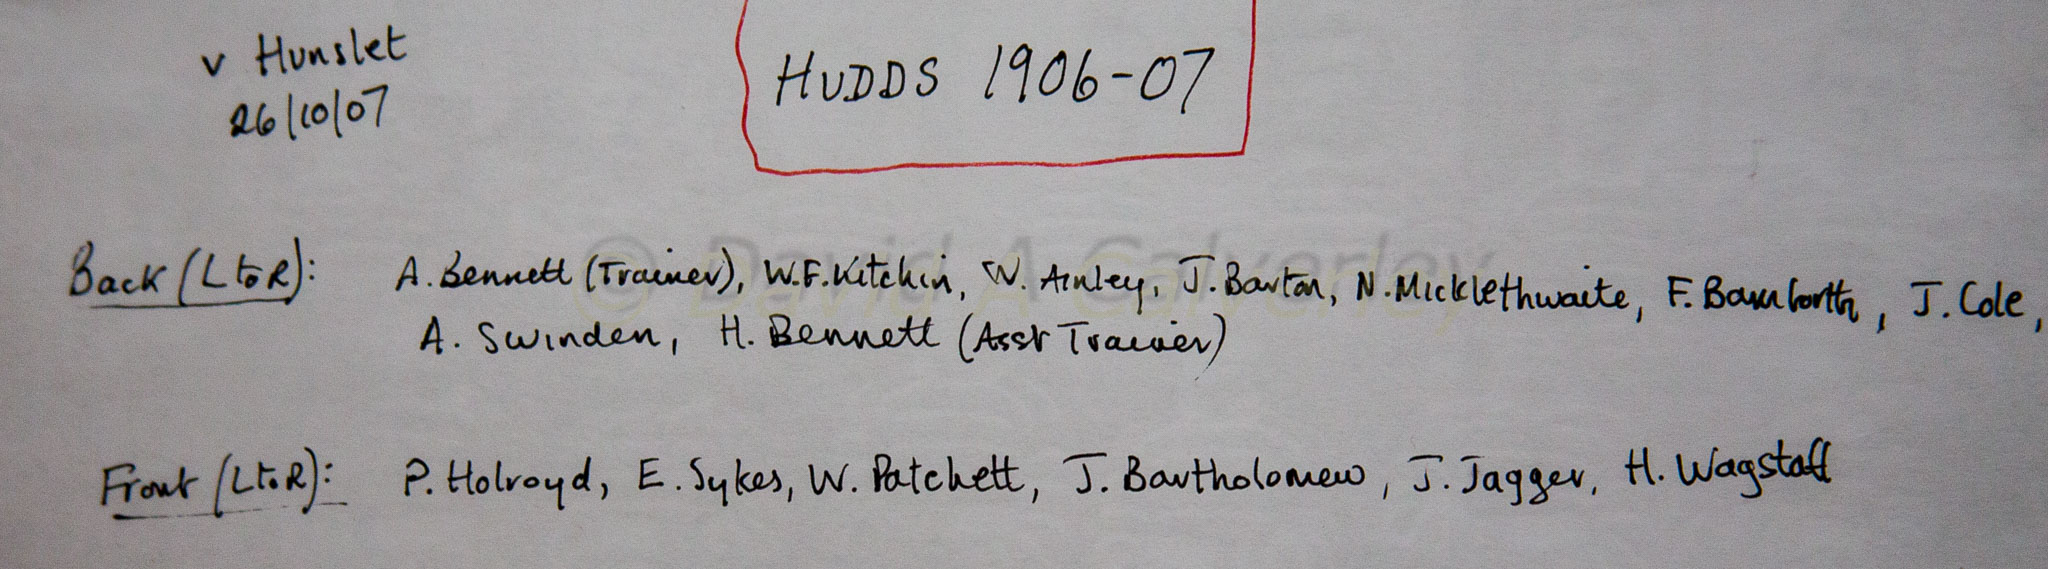 v Hunslet
26/10/07
HUDDS 1906-07
Back (L to R): A. Bennett (Trainer), W.F. Kitchin, W. Ainley, J. Barton, N. Micklethwaite, F. Bamforth, J. Cole,
A. Swinden, H. Bennett (Asst Trainer)
Front (L to R): P. Holroyd, E. Sykes, W. Patchett, J. Bartholomew, J. Jagger, H. Wagstaff
© David A Calverley